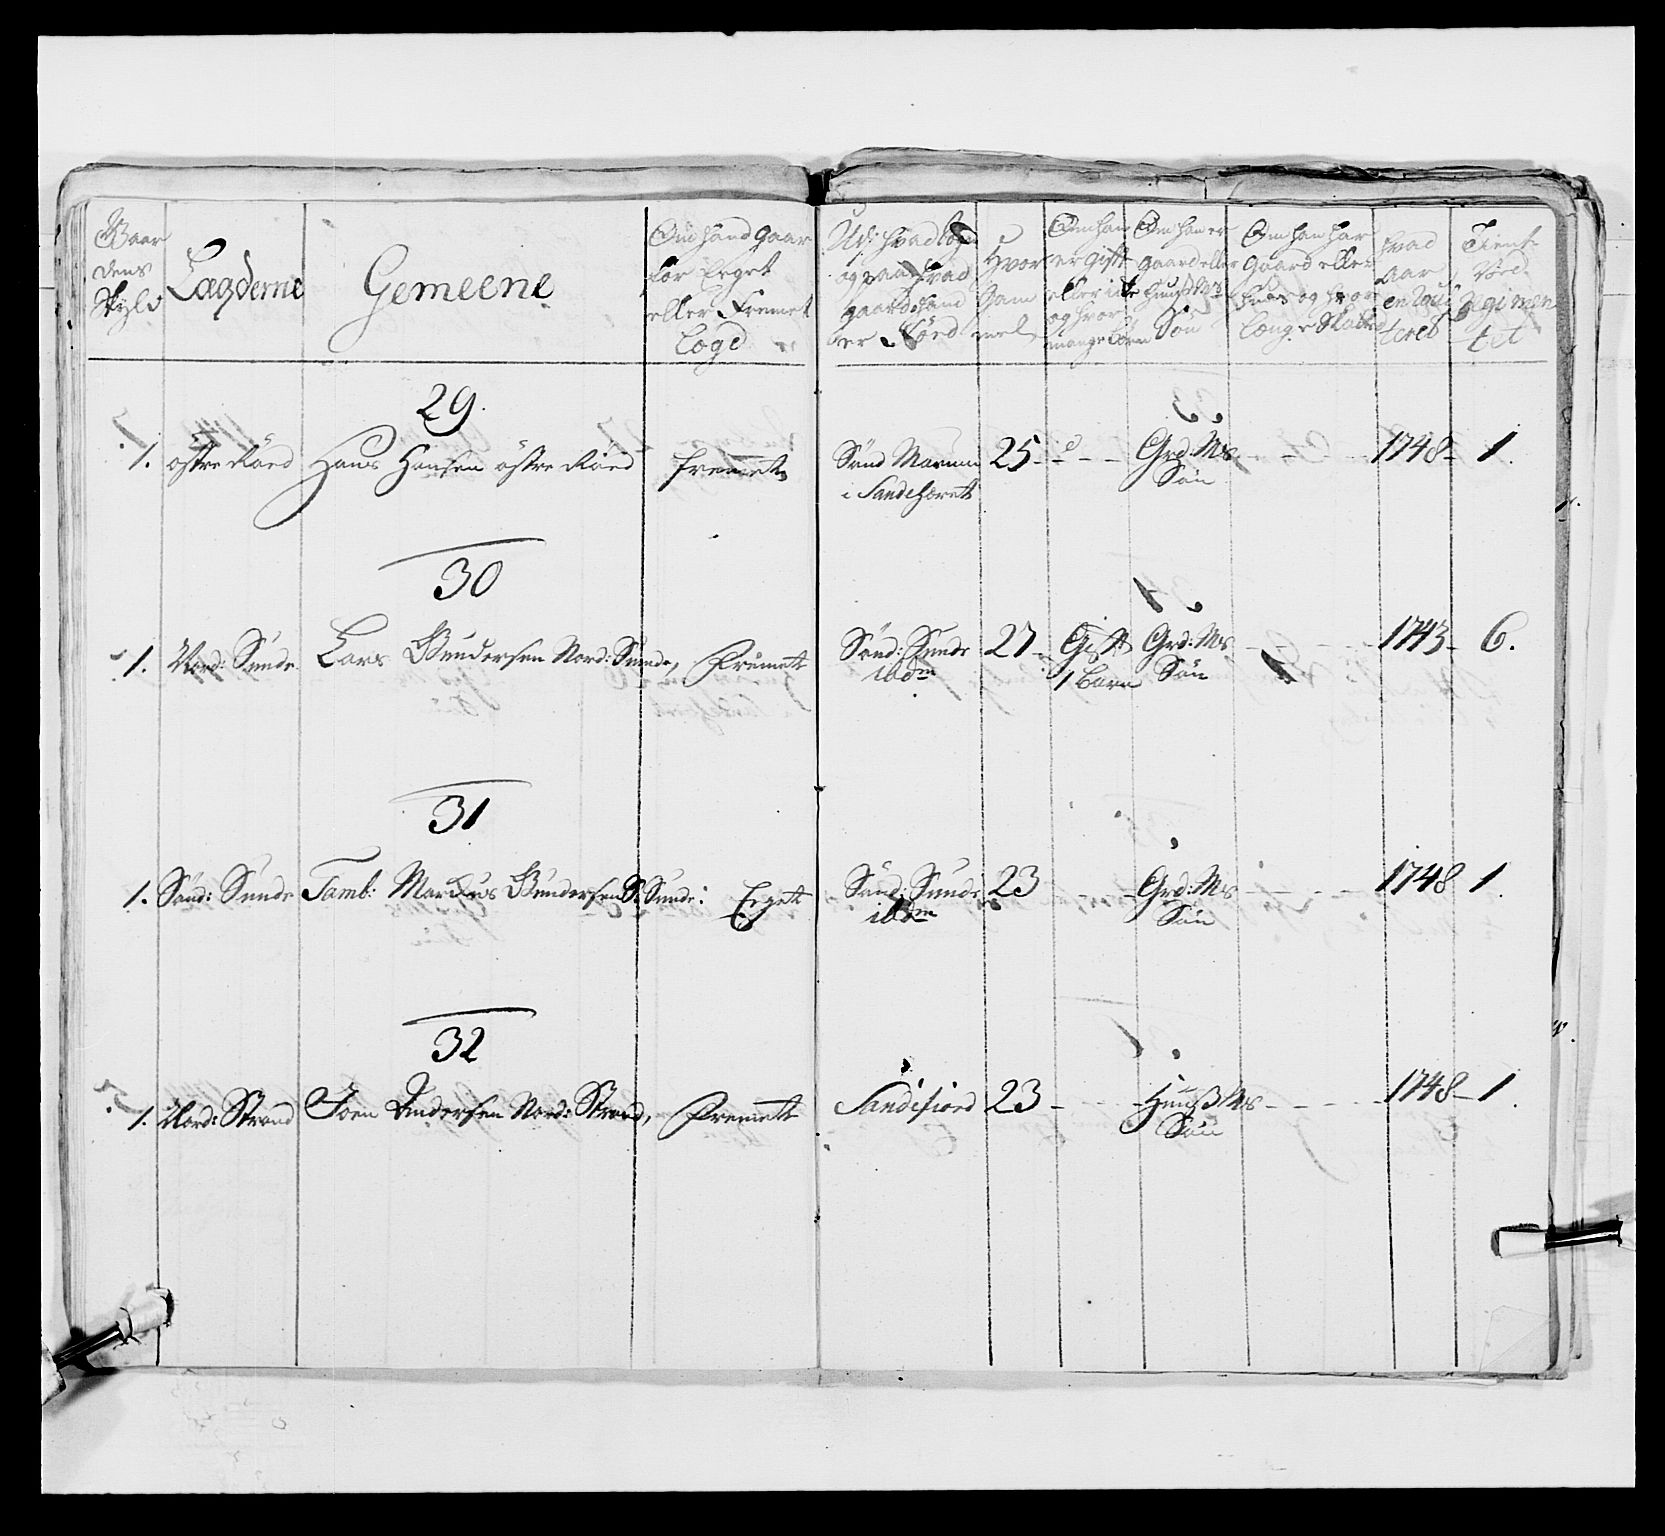 Gaar
dens
Skyld
Lægderne
Gemeene
Om hand gaar
for Eeget
eller Fremet
Logd
Udi hvad Sogn
og paa hvad
gaard hand
er Föed
Hvor
Gam
mel
Om han
er gift
eller icke
og hvor
mange börn
Om han er
gaard eller
Huusß Ms
Sön
Om han har
Gaard eller
huus og hvor
længe
hvad
Aar
enroul
leret
Tient
Ved
Regimen
tet
29.
1. östre Röed Hans Hansen östre Röed fremet Sand i Sandeherret 25 - - - Grd: Ms Sön - - - 1748 - 1.
30
1. Nord: Sunde Lars Gundersen Nord: Sunde, Fremet Sönd: Sunde ibdm 27 - Gift 1 barn Grd: Ms Sön - - - 1743 - 6.
31
1. Sönd: Sunde Tamb: Marcus Gundersen S: Sunde: Eeget Sönd: Sunde ibdm 23 - - - Grd: Ms Sön - - - 1748 - 1.
32
1. Nord: Strand Joen Andersen Nord: Strand, Fremet Sandefiord 23 - - - Huusß Ms Sön - - - 1748 - 1.